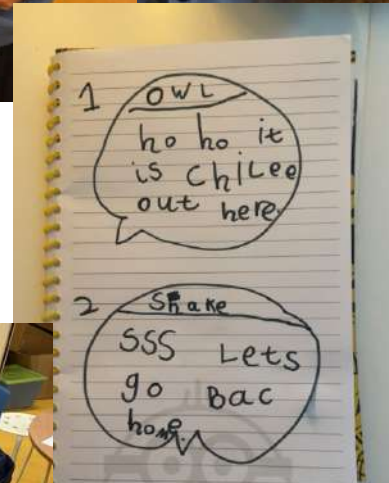 1
OWL
ho ho it
is chiLee
out here.
2
Snake
SSS Lets
go Bac
home.